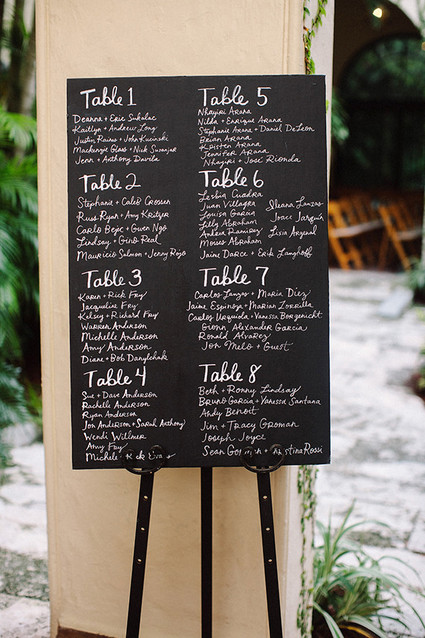 Table 1
Deanna + Eric Sukalac
Kaitlyn + Andrew Long
Justin Raines + John Kucinski
Mackenzie Glass + Nick Suranjan
Jenn + Anthony Davila
Table 2
Stephanie + Caleb Crossen
Russ Ryan + Amy Kritzer
Carlo Bejec + Gwen Ngo
Lindsay + Gino Real
Mauricio Salmon + Jenny Rojo
Table 3
Karen + Rick Fry
Jacqueline Fry
Kelsey + Richard Fry
Warren Anderson
Michelle Anderson
Amy Anderson
Diane + Bob Danylchak
Table 4
Sue + Dave Anderson
Rachelle Anderson
Ryan Anderson
Jon Anderson + Sarah Anthony
Wendi Willner
Amy Fry
Michele + Rick Evans
Table 5
Nhayiri Arana
Nilda + Enrique Arana
Stephanie Arana + Daniel DeLeon
Brian Arana
Kristen Arana
Jennifer Arana
Nhayiri + José Rionda
Table 6
Lesbia Cuadra
Juan Villagra Ileana Lanzas
Louisa Garcia
Lilly Abraham Joace Jarquín
Andrea Ramirez Lisia Argenal
Moises Abraham
Jaime Darce + Erik Langhoff
Table 7
Carlos Lanzas + Maria Diez
Jaime Espinoza + Marian Zorrilla
Carlos Urquiola + Vanessa Borgenicht
Alexander Garcia
Ronald Alvarez
Jon Melo + Guest
Table 8
Beth + Ronny Lindsay
Bruno Garcia + Vanessa Santana
Andy Benoit
Jim + Tracy Groman
Joseph Joyce
Sean + Rossi